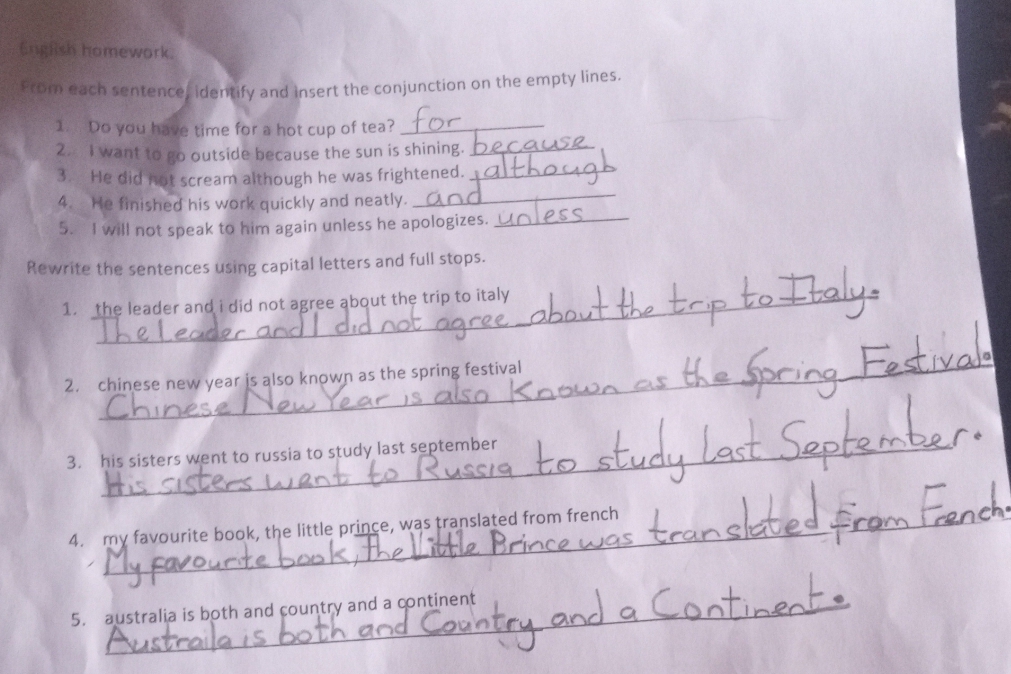 English homework.
From each sentence, identify and insert the conjunction on the empty lines.
1. Do you have time for a hot cup of tea? for
2. I want to go outside because the sun is shining. because
3. He did not scream although he was frightened. although
4. He finished his work quickly and neatly. and
5. I will not speak to him again unless he apologizes. unless
Rewrite the sentences using capital letters and full stops.
1. the leader and i did not agree about the trip to italy
The Leader and I did not agree about the trip to Italy.
2. chinese new year is also known as the spring festival
Chinese New Year is also Known as the Spring Festival.
3. his sisters went to russia to study last september
His sisters want to Russia to study last September.
4. my favourite book, the little prince, was translated from french
My favourite book, The Little Prince was translated from Fench.
5. australia is both and country and a continent
Austraila is both and Country and a Continent.